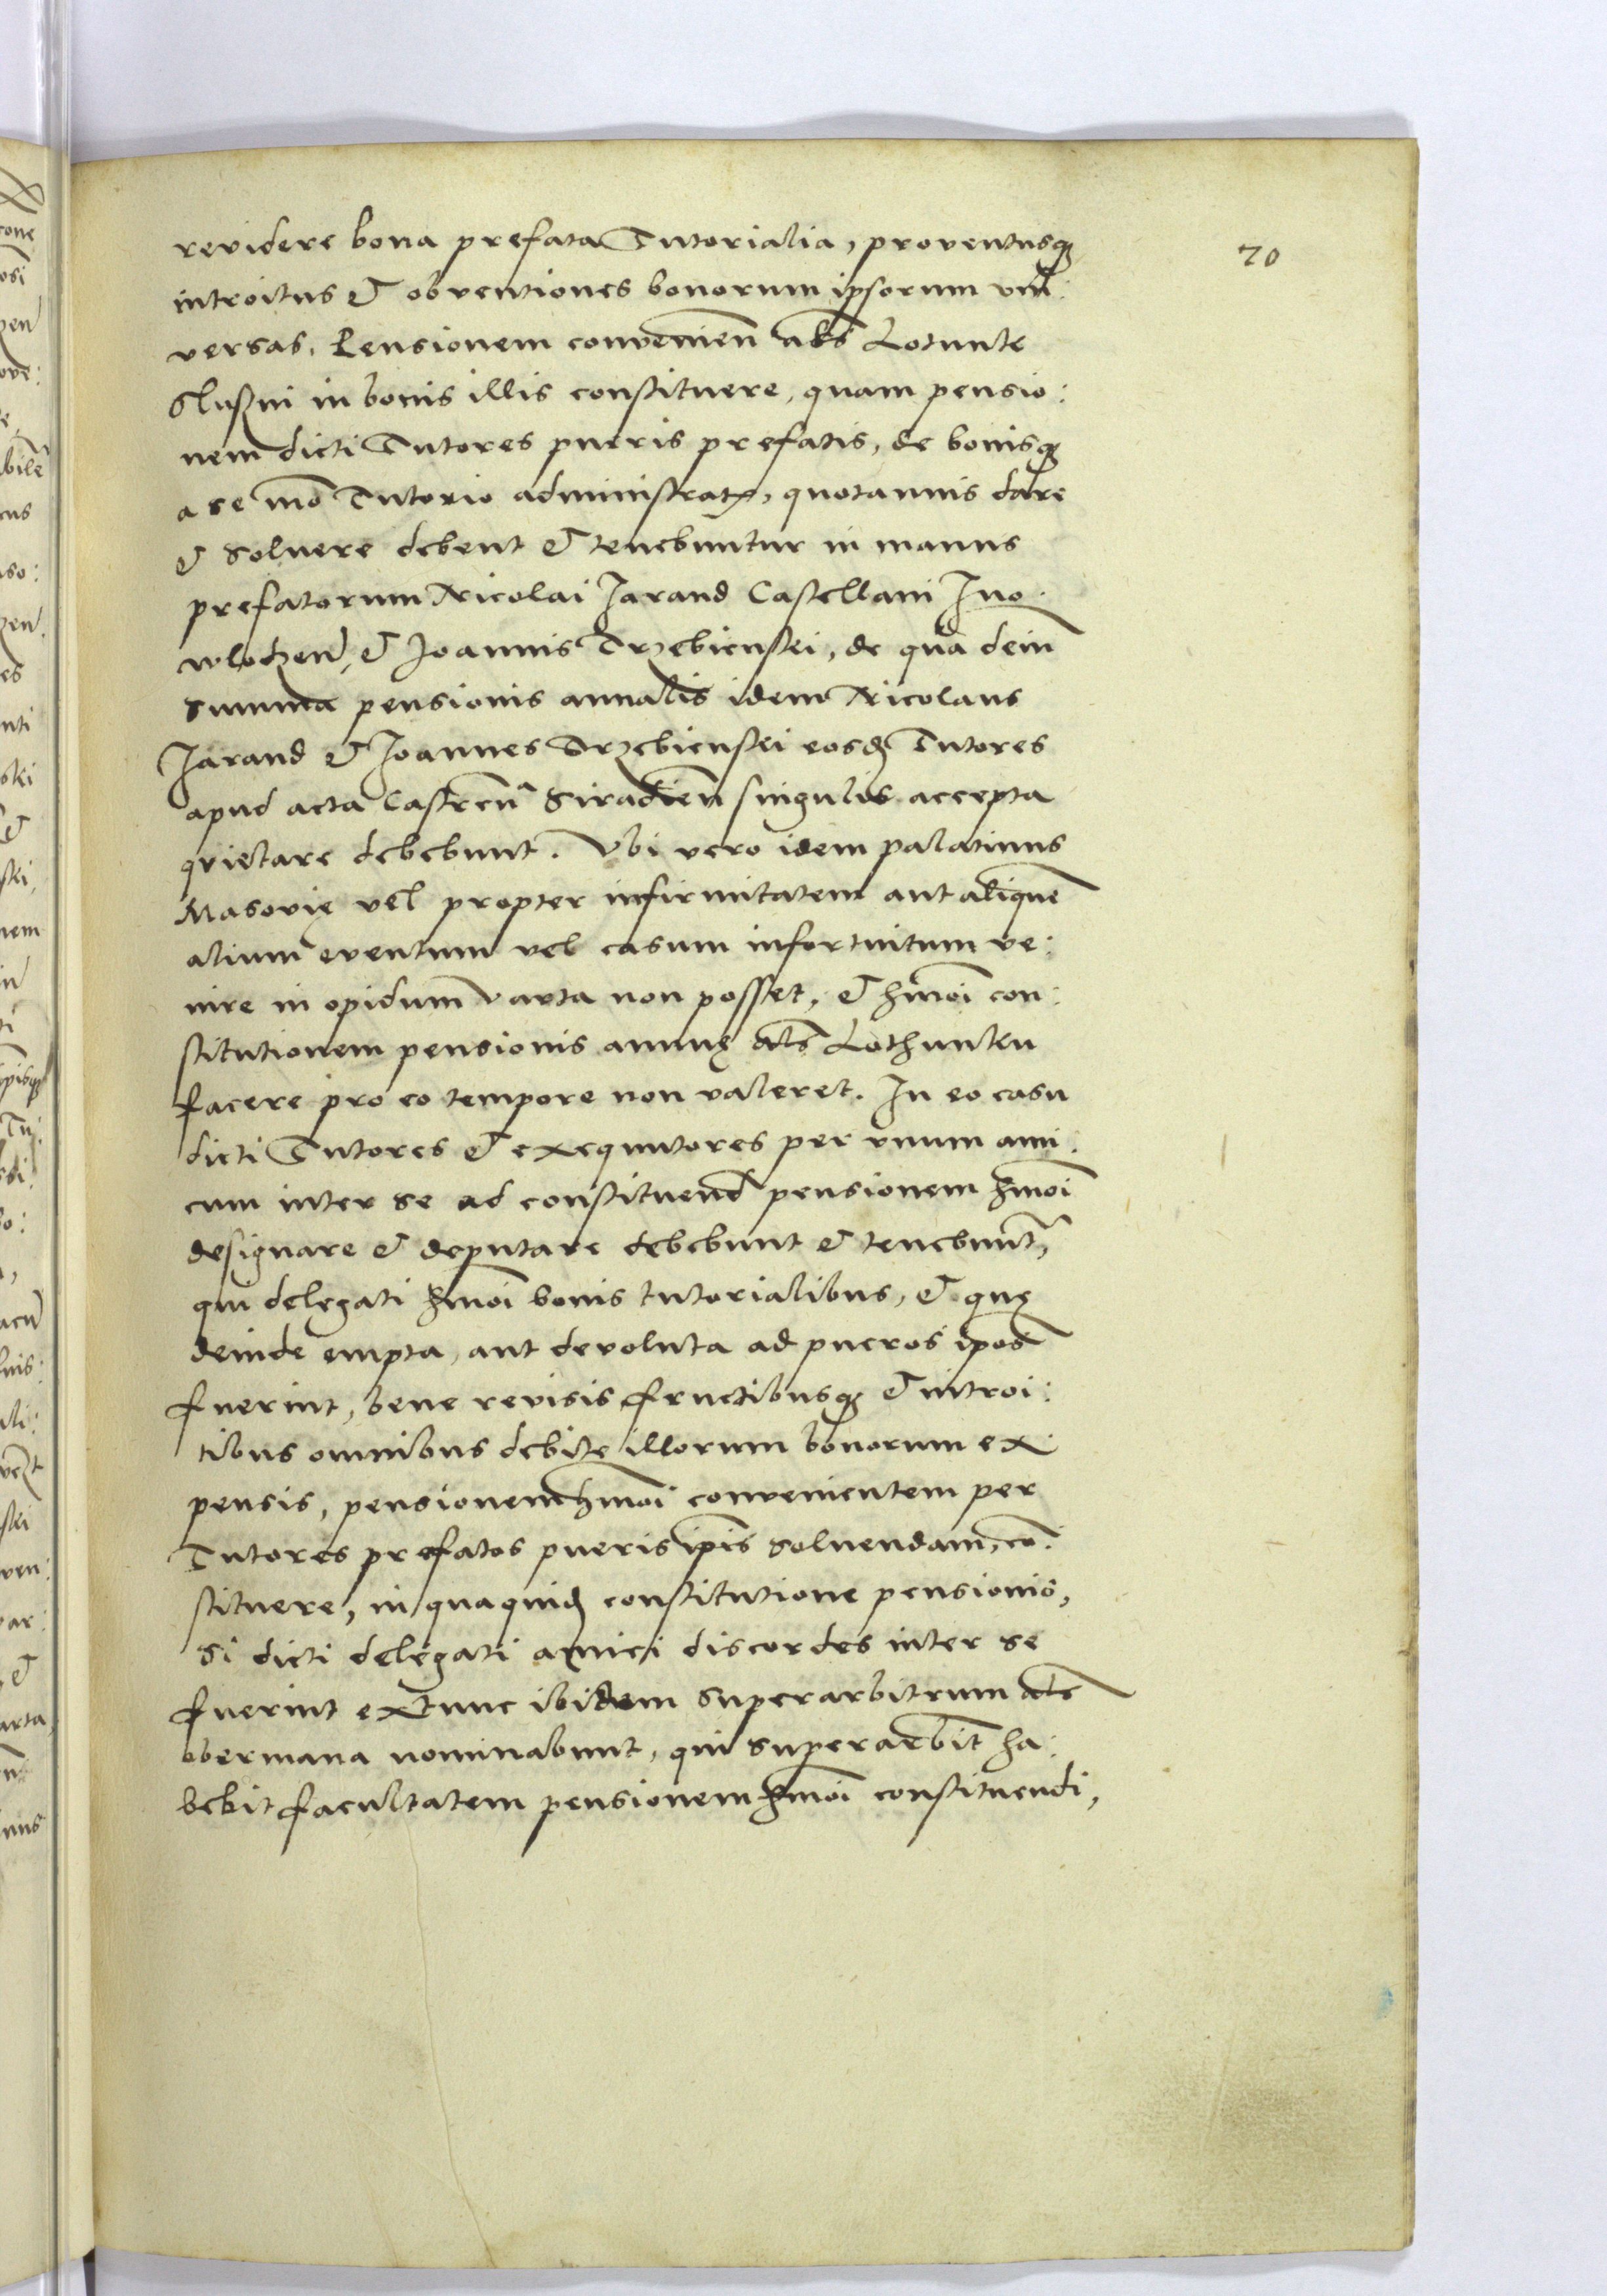 70
revidere bona prefata Tutorialia, proventusq₃
introitus et obventiones bonorum ipsorum uni:
versas. Pensionem convenien̄ al̄s Lotunk
Sluszni in bonis illis constituere, quam pensio:
nem dicti Tutores pueris prefatis, de bonisq₃
a se mō Tutorio administratꝭ, quotannis dare
et soluere debent et tenebuntur in manus
prefatorum Nicolai Jarand Castellani Juo.
wlodzen̄, et Joannis Trzebienski, de qua dein̄
summa pensionis annalis idem Nicolaus
Jarand et Joannes Trzebienski eosd₃ Tutores
apud acta Castren̄ Siradien̄ singulis accepta
quietare debebunt. Vbi vero idem palatinus
Masovię vel propter infirmitatem aut aliquem̄
alium eventum vel casum infortuitum ve:
nire in opidum Varta non posset, et hmōi con:
stitutionem pensionis annuę al̄s Lothunku
facere pro eo tempore non valeret. In eo casu
dicti Tutores et exequutores per unum ami:
cum inter se ad constituend̄ pensionem hmōi
designare et deputare debebunt et tenebunt̄,
qui delegati hmōi bonis tutorialibus, et quę
deinde empta, aut devoluta ad pueros ipōs
fuerint, bene revisis fructibusq₃ et introi:
tibus omnibus debite illorum bonorum ex
pensis, pensionem hmōi convenientem per
Tutores prefatos pueris ipīs soluendam, cō:
stituere, in quaquid₃ constitutione pensionis,
Si dicti delegati amici discordes inter se
fuerint extunc ibidem superarbitrum al̄s
obermana nominabunt, qui superarbit̄ ha:
bebit facultatem pensionem hmōi constituendi,